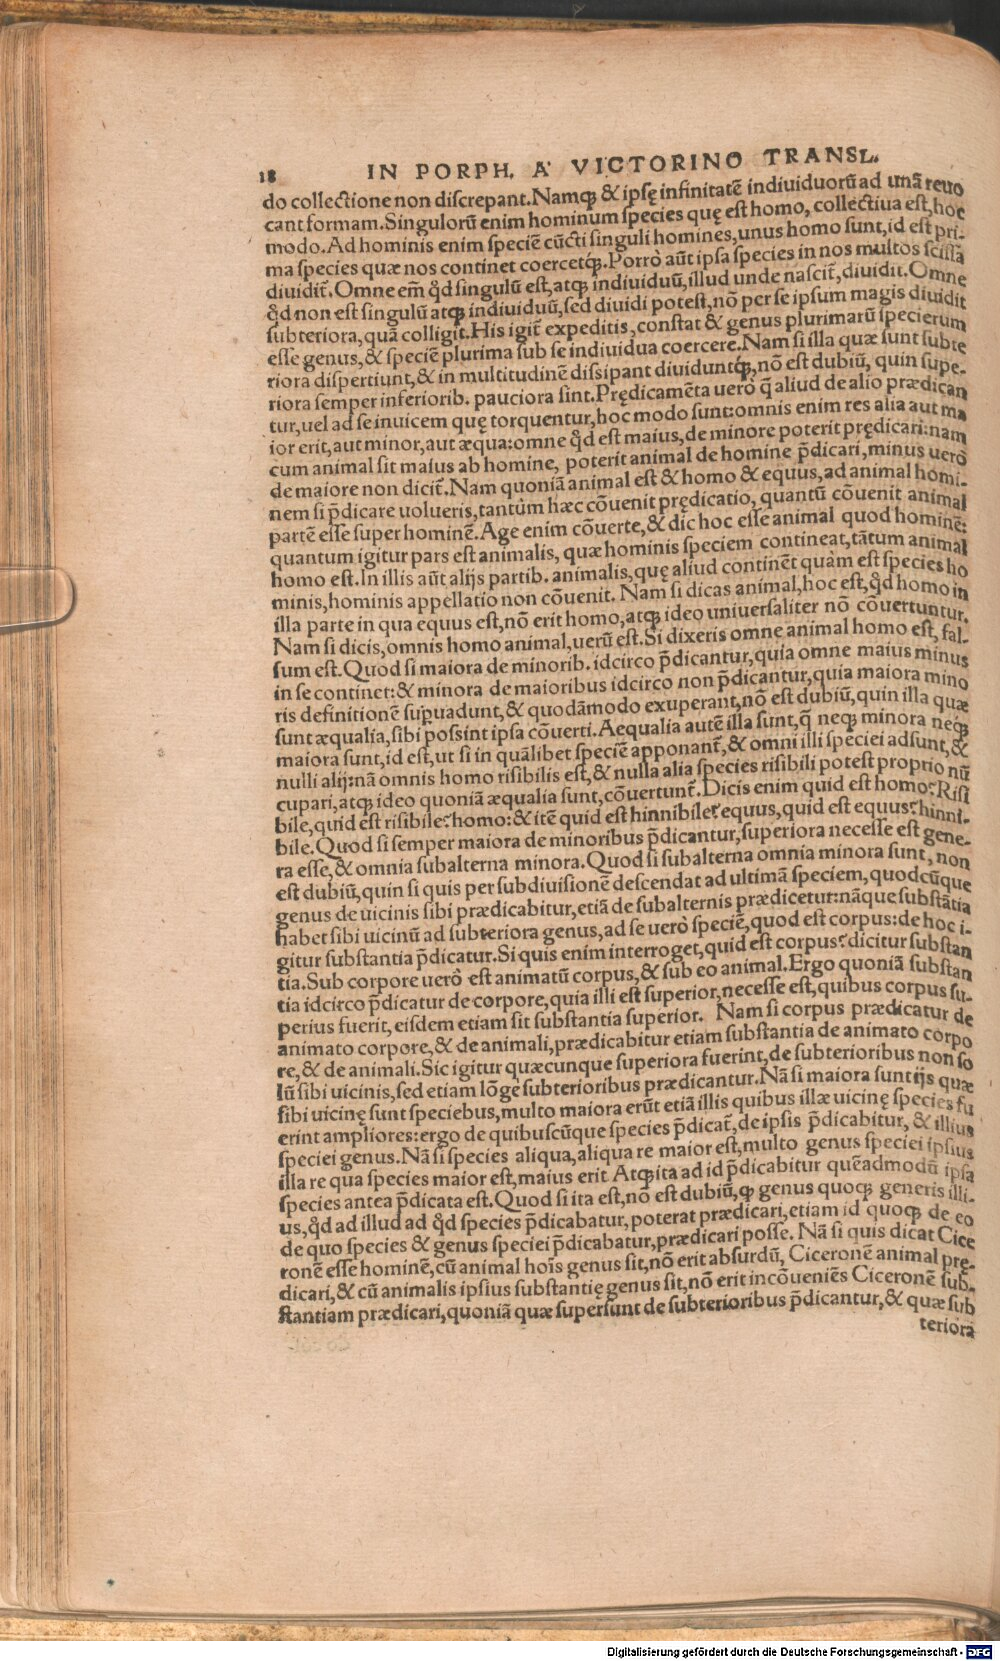 18 IN PORPH. A' VICTORINO TRANSL.
do collectione non discrepant. Namq; & ipsę infinitatē indiuiduorū ad unā reuo
cant formam. Singulorū enim hominum species quę est homo, collectiua est, hoc
modo. Ad hominis enim speciē cūcti singuli homines, unus homo sunt, id est pri-
ma species quæ nos continet coercetq́;. Porrò aūt ipsa species in nos multos scissā
diuidit̄. Omne em̄ qd̄ singulū est, atq; indiuiduū, illud unde nascit̄, diuidit. Omne
qd̄ non est singulū atq; indiuiduū, sed diuidi potest, nō per se ipsum magis diuidit
subteriora, quā colligit. His igit̄ expeditis, constat & genus plurimarū specierum
esse genus, & speciē plurima sub se indiuidua coercere. Nam si illa quæ sunt subte
riora dispertiunt, & in multitudinē dissipant diuiduntq́;, nō est dubiū, quin supe-
riora semper inferiorib. pauciora sint. Prędicamēta uerò q̄ aliud de alio prædican
tur, uel ad se inuicem quę torquentur, hoc modo sunt: omnis enim res alia aut ma
ior erit, aut minor, aut æqua: omne qd̄ est maius, de minore poterit prędicari: nam
cum animal sit maius ab homine, poterit animal de homine p̄dicari, minus uerò
de maiore non dicit̄. Nam quoniā animal est & homo & equus, ad animal homi-
nem si p̄dicare uolueris, tantùm hæc cōuenit prędicatio, quantū cōuenit animal
partē esse super hominē. Age enim cōuerte, & dic hoc esse animal quod hominē:
quantum igitur pars est animalis, quæ hominis speciem contineat, tātum animal
homo est. In illis aūt alijs partib. animalis, quę aliud continēt quàm est species ho
minis, hominis appellatio non cōuenit. Nam si dicas animal, hoc est, qd̄ homo in
illa parte in qua equus est, nō erit homo, atq; ideo uniuersaliter nō cōuertuntur.
Nam si dicis, omnis homo animal, uerū est. Si dixeris omne animal homo est, fal-
sum est. Quod si maiora de minorib. idcirco p̄dicantur, quia omne maius minus
in se continet: & minora de maioribus idcirco non p̄dicantur, quia maiora mino
ris definitionē supuadunt, & quodāmodo exuperant, nō est dubiū, quin illa quæ
sunt æqualia, sibi possint ipsa cōuerti. Aequalia autē illa sunt, q̄ neq; minora neq;
maiora sunt, id est, ut si in quālibet speciē apponant̄, & omni illi speciei adsunt, &
nulli alij: nā omnis homo risibilis est, & nulla alia species risibili potest proprio nū
cupari, atq; ideo quoniā æqualia sunt, cōuertunt̄. Dicis enim quid est homo? Risi
bile, quid est risibile? homo: & itē quid est hinnibile? equus, quid est equus? hinni-
bile. Quod si semper maiora de minoribus p̄dicantur, superiora necesse est gene-
ra esse, & omnia subalterna minora. Quod si subalterna omnia minora sunt, non
est dubiū, quin si quis per subdiuisionē descendat ad ultimā speciem, quodcūque
genus de uicinis sibi prædicabitur, etiā de subalternis prædicetur: nāque substātia
habet sibi uicinū ad subteriora genus, ad se uerò speciē, quod est corpus: de hoc i-
gitur substantia p̄dicatur. Si quis enim interroget, quid est corpus? dicitur substan
tia. Sub corpore uerò est animatū corpus, & sub eo animal. Ergo quoniā substan
tia idcirco p̄dicatur de corpore, quia illi est superior, necesse est, quibus corpus su-
perius fuerit, eisdem etiam sit substantia superior. Nam si corpus prædicatur de
animato corpore, & de animali, prædicabitur etiam substantia de animato corpo
re, & de animali. Sic igitur quæcunque superiora fuerint, de subterioribus non so
lū sibi uicinis, sed etiam lōge subterioribus prædicantur. Nā si maiora sunt ijs quæ
sibi uicinę sunt speciebus, multo maiora erūt etiā illis quibus illæ uicinę species fu
erint ampliores: ergo de quibuscūque species p̄dicat̄, de ipsis p̄dicabitur, & illius
speciei genus. Nā si species aliqua, aliqua re maior est, multo genus speciei ipsius
illa re qua species maior est, maius erit. Atq; ita ad id p̄dicabitur quēadmodū ipsa
species antea p̄dicata est. Quod si ita est, nō est dubiū, q; genus quoq; generis illi-
us, qd̄ ad illud ad qd̄ species p̄dicabatur, poterat prædicari, etiam id quoq; de eo
de quo species & genus speciei p̄dicabatur, prædicari posse. Nā si quis dicat Cice
ronē esse hominē, cū animal hoīs genus sit, nō erit absurdū, Ciceronē animal prę-
dicari, & cū animalis ipsius substantię genus sit, nō erit incōueniēs Ciceronē sub-
stantiam prædicari, quoniā quæ supersunt de subterioribus p̄dicantur, & quæ sub
teriora
Digitalisierung gefördert durch die Deutsche Forschungsgemeinschaft - DFG